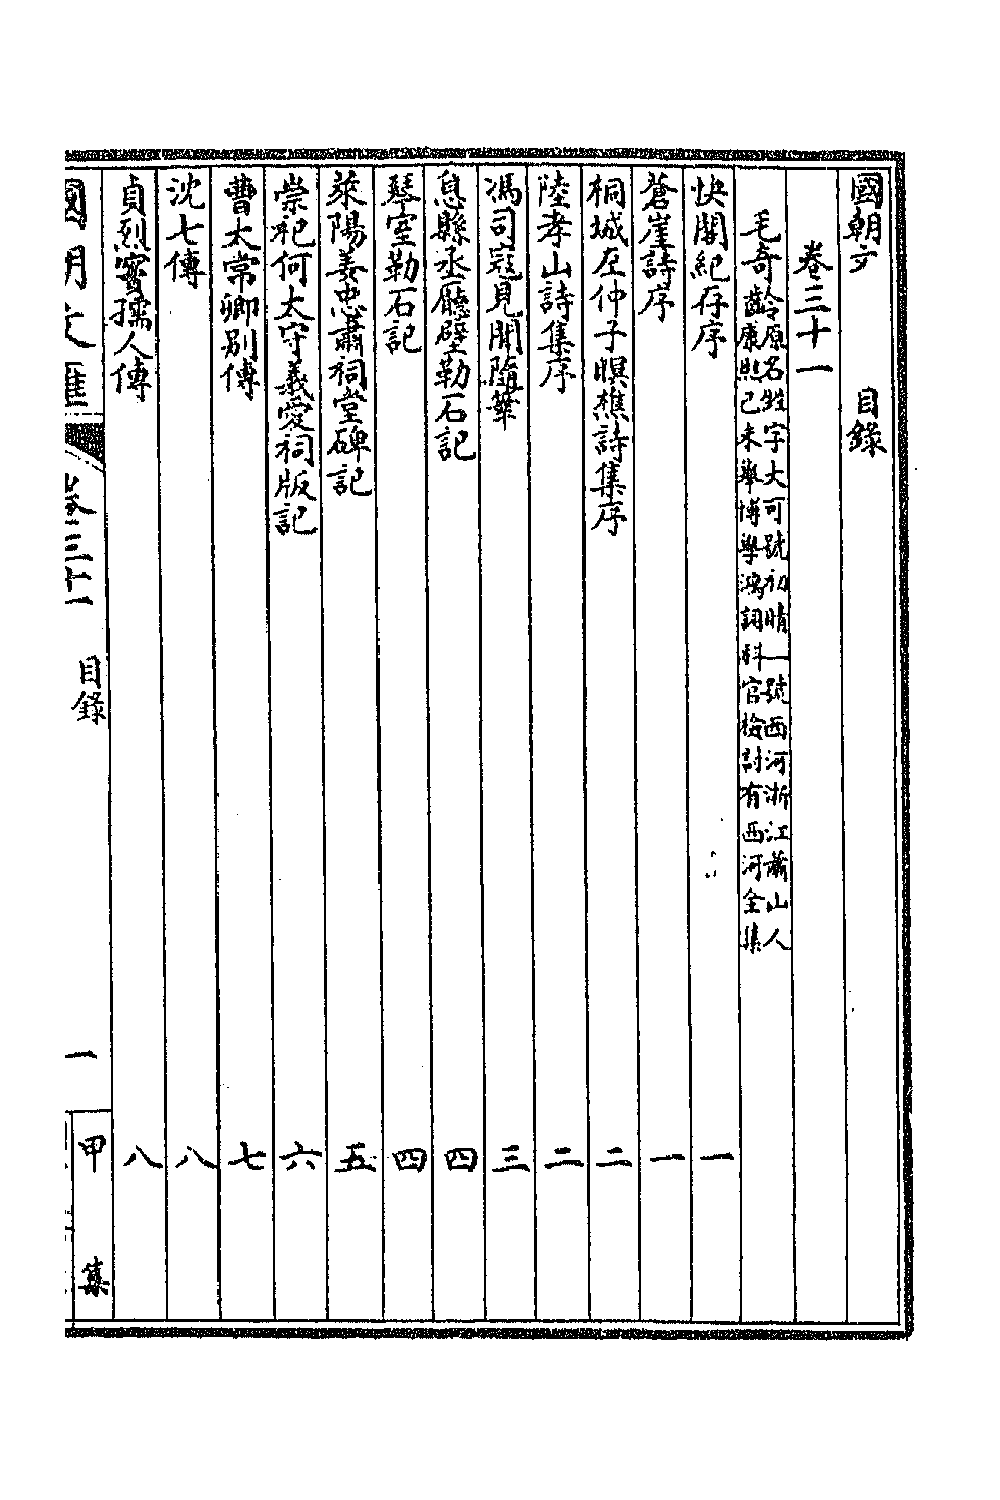 國朝文 目錄
卷三十一
毛奇齡原名甡字大可號初晴一號西河浙江蕭山人
康熙己未舉博學鴻詞科官檢討有西河全集
快閣紀存序 一
蒼崖詩序 一
桐城左仲子暝樵詩集序 二
陸孝山詩集序 二
馮司寇見聞隨筆 三
息縣丞廳壁勒石記 四
琴室勒石記 四
萊陽姜忠肅祠堂碑記 五
崇祀何太守義愛祠版記 六
曹太常卿別傳 七
沈七傳 八
貞烈竇孺人傳 八
國朝文匯 卷三十一 目錄 一 甲集